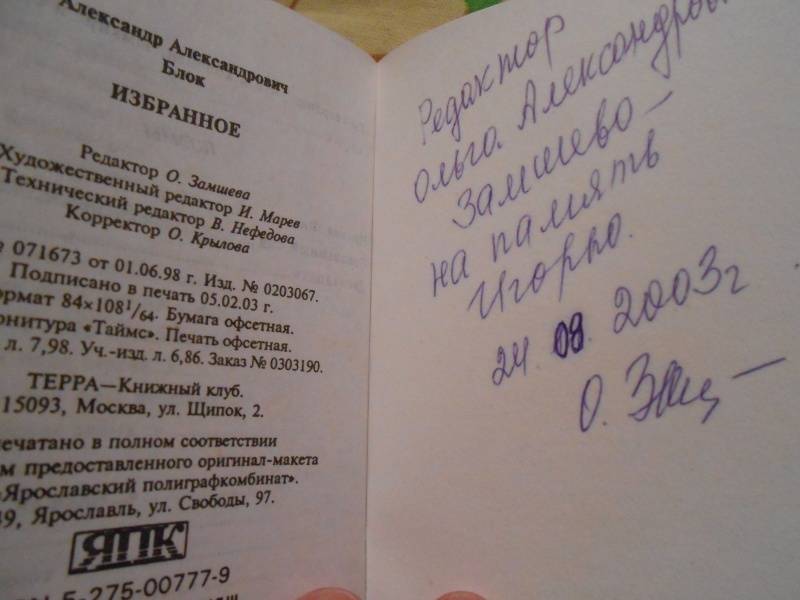 Александр Александрович
Блок
ИЗБРАННОЕ
Редактор О. Замшева
Художественный редактор И. Марев
Технический редактор В. Нефедова
Корректор О. Крылова
№ 071673 от 01.06.98 г. Изд. № 0203067.
Подписано в печать 05.02.03 г.
ормат 84×108 1/64. Бумага офсетная.
рнитура «Таймс». Печать офсетная.
л. 7,98. Уч.-изд. л. 6,86. Заказ № 0303190.
ТЕРРА—Книжный клуб.
15093, Москва, ул. Щипок, 2.
ечатано в полном соответствии
м предоставленного оригинал-макета
«Ярославский полиграфкомбинат».
49, Ярославль, ул. Свободы, 97.
ЯПК
5-275-00777-9
Редактор
Ольга Александров
Замшево—
на память
Игорю.
24. 08. 2003г
О. Зам